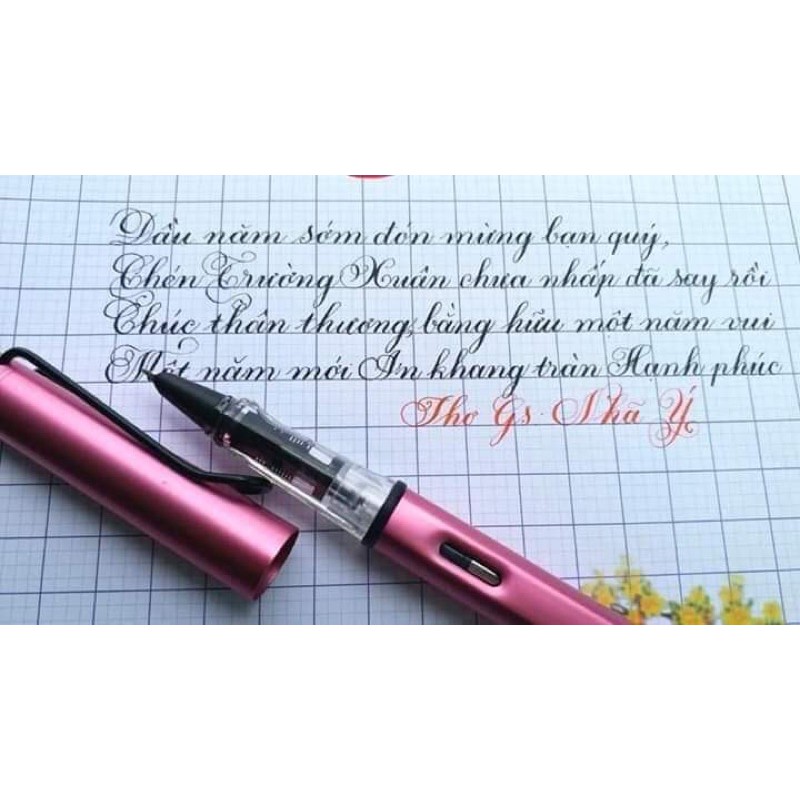 Đầu năm sớm đón mừng bạn quý,
Chén Trường Xuân chưa nhấp đã say rồi
Chúc thân thương, bằng hữu một năm vui
Một năm mới An khang tràn Hạnh phúc
Thơ Gs. Nhã Ý